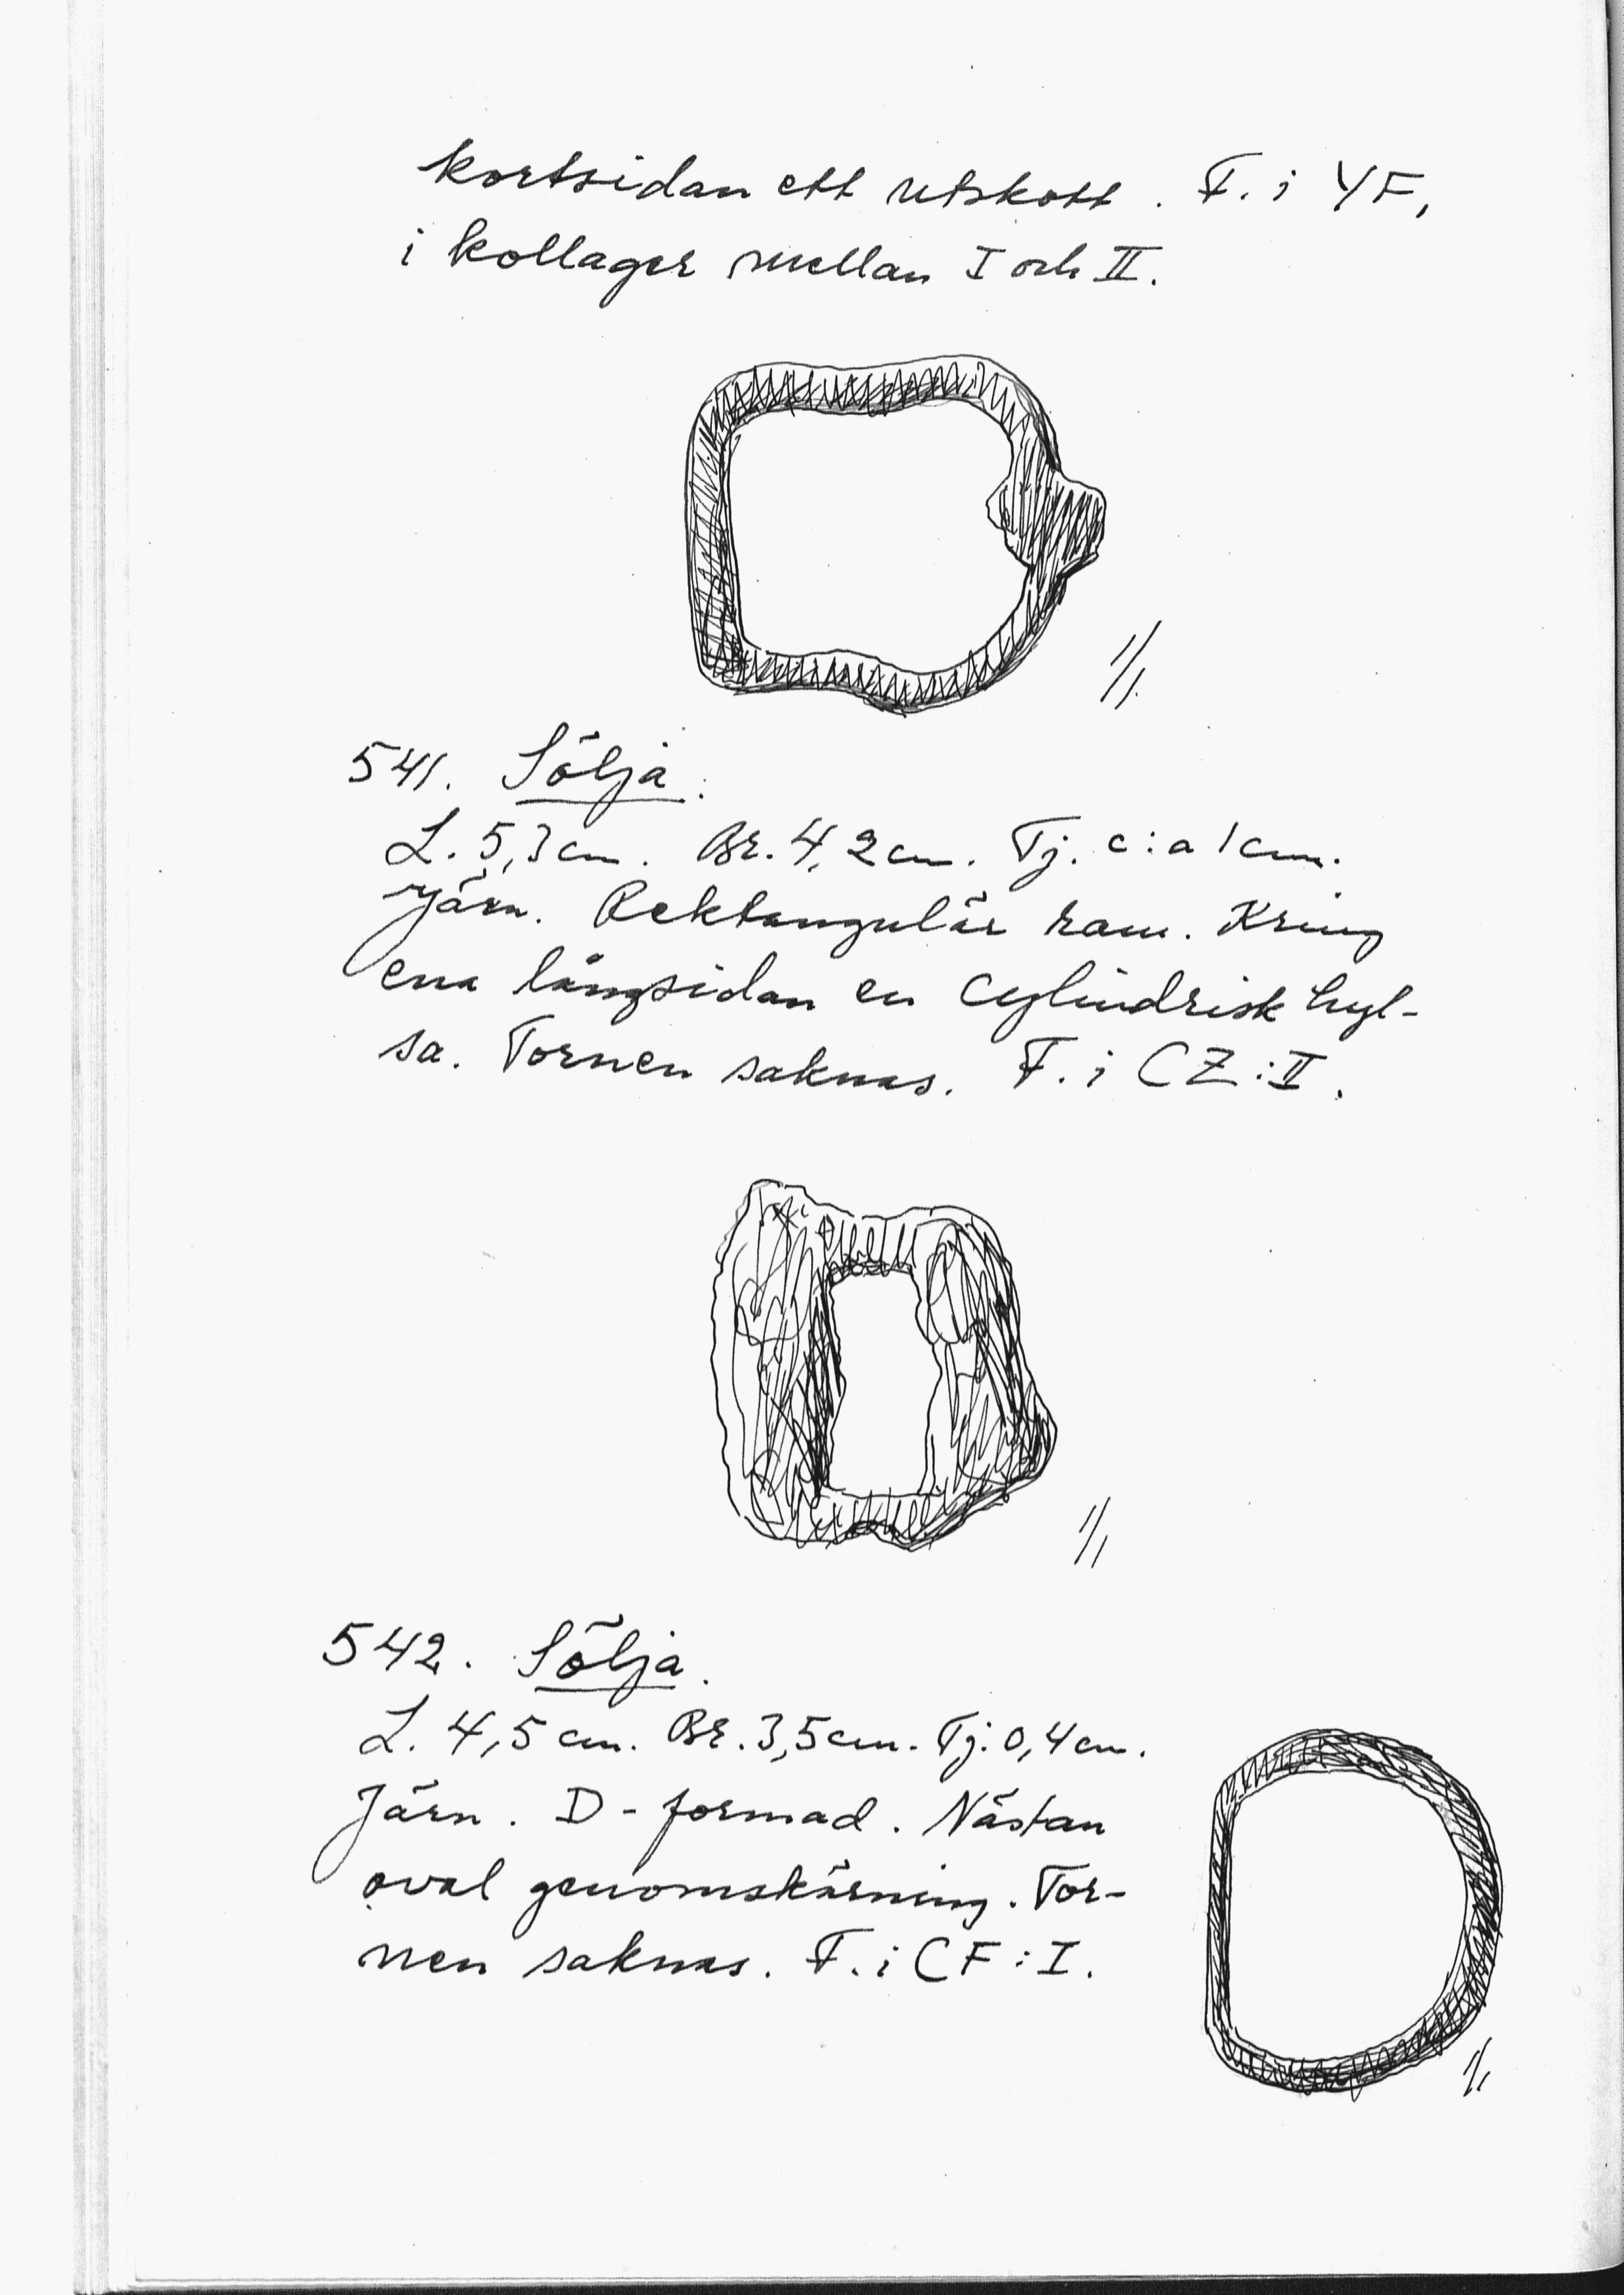 kortsidan ett utskott. F. i YF,
i kollager mellan I och II.
1/1.
541. Sölja.
L. 5,3 cm. Br. 4,2 cm. Tj. c:a 1 cm.
Järn. Rektangulär ram. Kring
ena långsidan en cylindrisk hyl-
sa. Tornen saknas. F. i CZ:II.
1/1
542. Sölja.
L. 4,5 cm. Br. 3,5 cm. Tj. 0,4 cm.
Järn. D-formad. Nästan
oval genomskärning. Tor-
nen saknas. F. i CF:I.
1/1